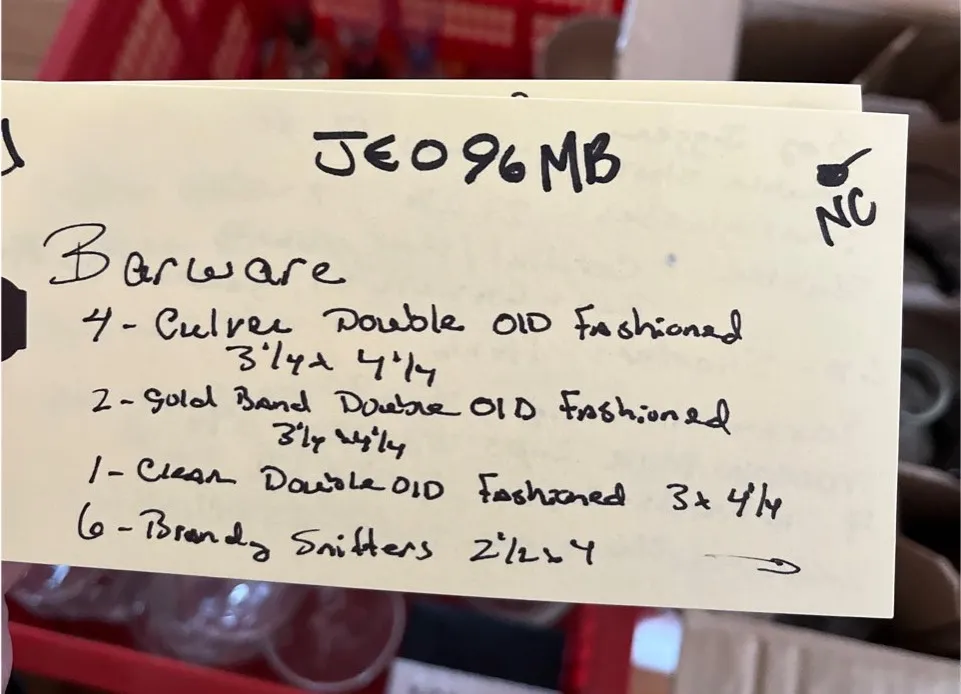 JE096MB
NC
Barware
4 - Culver Double Old Fashioned
3 1/4 x 4 1/4
2 - Gold Band Double Old Fashioned
3 1/4 x 4 1/4
1 - Clear Double Old Fashioned 3 x 4 1/4
6 - Brandy Snifters 2 1/2 x 4